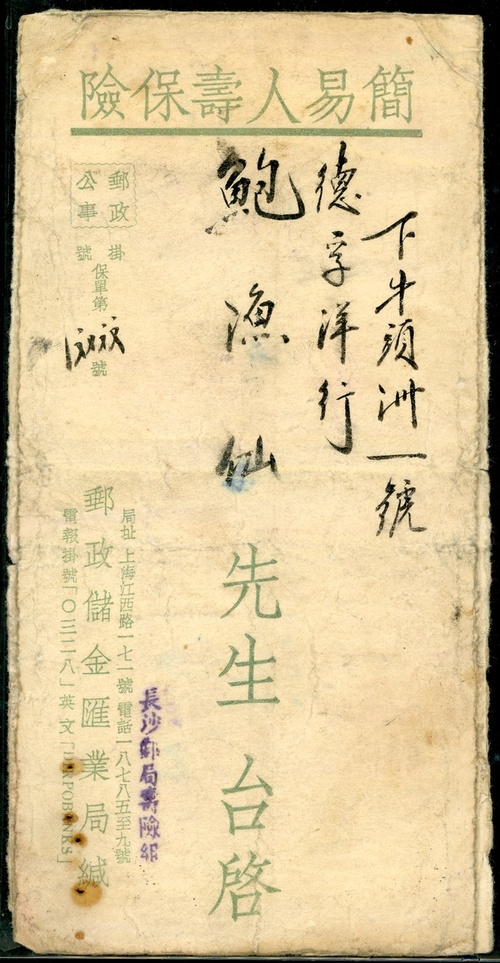 簡易人壽保險
下牛頭洲一號
德孚洋行
鮑漁仙先生台啓
郵政
公事
掛號
保單第
號
長沙郵局壽險組
局址 上海江西路一七一號 電話一八七八五至九號
郵政儲金匯業局緘
電報掛號「〇三二八」英文「DIRPOBANKS」